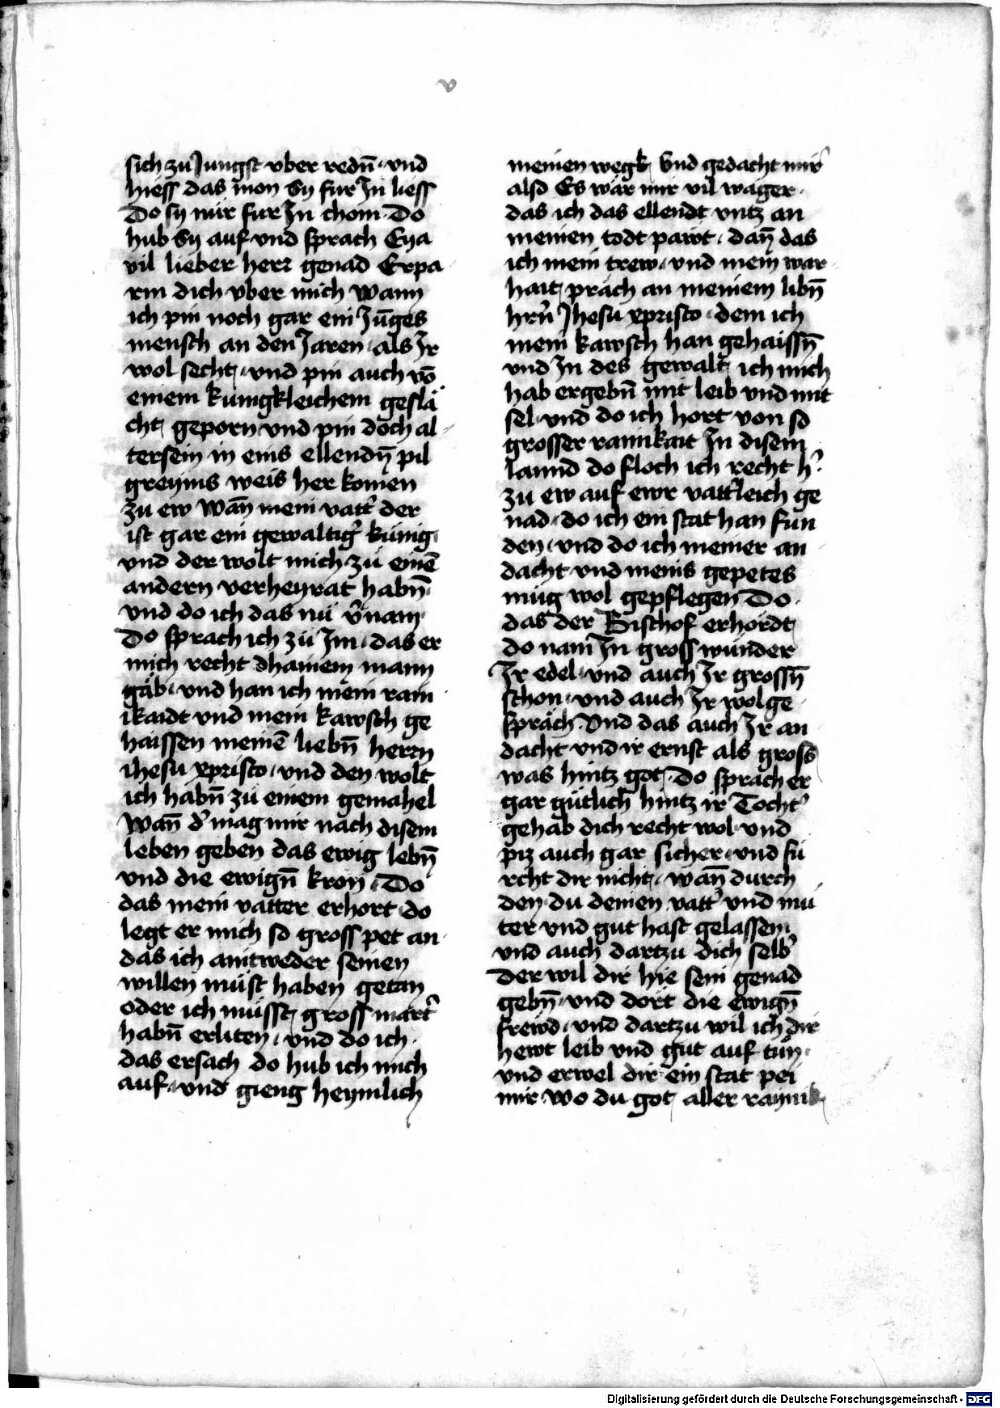 v
sich zu Jungst vber redñ · vnd
hiess das mon Sy fur In liess
Do sy nür fur In chom · Do
hub Sy auf vnd sprach Eya
vil lieber herr genad Erpa
rm dich vber mich Wann
ich pin noch gar ein Jūges
mensch an den Jaren · als Ir
wol secht · vnd pin auch vō
einem kunigkleichem geslä
cht geporn vnd pin doch al
tersein in eins ellendn̄ pil
greyms weis her komen
zu ew Wan̄ mein vatt' der
ist gar ein gewaltig' künig
vnd der wolt mich zu einē
andern verheyrat habn̄
vnd do ich das nu v'nam
Do sprach ich zü Im · das er
mich recht dhainem mann
gäb · vnd han ich mein rain
ikaidt vnd mein kawsch ge
haissen meinē liebn̄ herrn
ihesu xpristo · vnd den wolt
ich habn̄ zü einem gemahel
Wan̄ d' mag mir nach disem
leben geben das ewig lebn̄
vnd die ewign̄ kron · Do
das mein vatter erhort do
legt er mich so gross pet an
das ich aintweder seinen
willen müst haben getan
oder ich müsst gross mart'
habn̄ erliten · vnd do ich
das ersach do hub ich mich
auf · vnd gieng heymlich
meinen wegk Vnd gedacht mir
also Es wär mir vil wäger ·
das ich das ellendt vntz an
meinen todt pawt · dan̄ das
ich mein trew · vnd mein war
hait präch an meinem libn̄
hrn̄ Jhesu xpristo · dem ich
mein kawsch han gehaissn̄
vnd In des gewalt ich mich
hab ergebn̄ mit leib vnd mit
sel · vnd do ich hort von so
grosser rainikait In disem
lannd do floch ich recht h'
zu ew auf ewr vätt'leich ge
nad · do ich ein stat han fun
den · vnd do ich meiner an
dacht vnd meins gepetes
müg wol gepflegen Do ·
das der Bischof erhordt
do nam In gross wunder
Ir edel · vnd auch Ir grossn̄
schon · vnd auch Ir wolge
spräch Vnd das auch Ir an
dacht vnd ir ernst als gross
was hintz got · Do sprach er
gar gütlich hintz ir Tocht'
gehab dich recht wol · vnd
piz auch gar sicher · vnd fü
rcht dir nicht · wan̄ durch
den du deinen vatt' vnd mü
ter vnd gut hast gelassen
vnd auch dartzu dich selb'
Der wil dir hie sein genad
gebn̄ · vnd dort die ewign̄
frewd · vnd dartzu wil ich dir
hewt leib vnd gut auf tün ·
vnd erwel dir ein stat pei
mir wo du got aller raynik
Digitalisierung gefördert durch die Deutsche Forschungsgemeinschaft - DFG